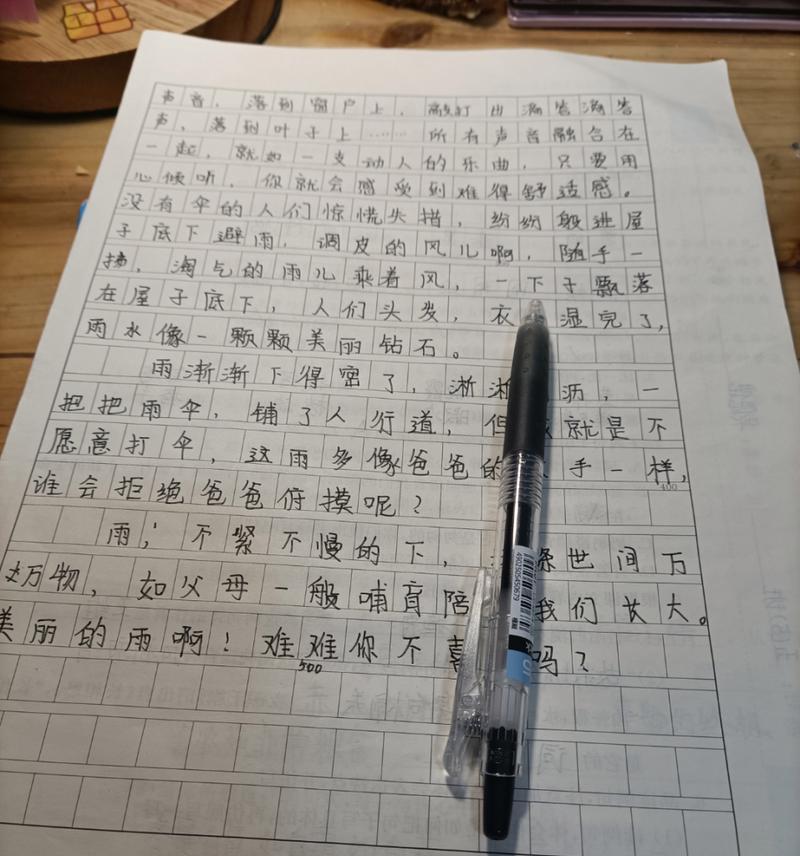 声音，落到窗户上，敲打出滴答滴答
声，落到叶子上……所有声音融合在
一起，就如一支动人的乐曲，只要用
心倾听，你就会感受到难得舒适感。
没有伞的人们惊慌失措，纷纷躲进屋
子底下避雨，调皮的风儿啊，随手一
挥，淘气的雨儿乘着风，一下子飘落
在屋子底下，人们头发，衣 湿完了，
雨水像一颗颗美丽钻石。
雨渐渐下得密了，淅淅 沥，一
把把雨伞，铺了人行道，但 就是不
愿意打伞，这雨多像爸爸的 手一样，
400
谁会拒绝爸爸俯摸呢？
雨，不紧不慢的下， 世间万
万物，如父母一般哺育陪 我们长大。
美丽的雨啊！难难你不喜 吗？
500
4902505450679